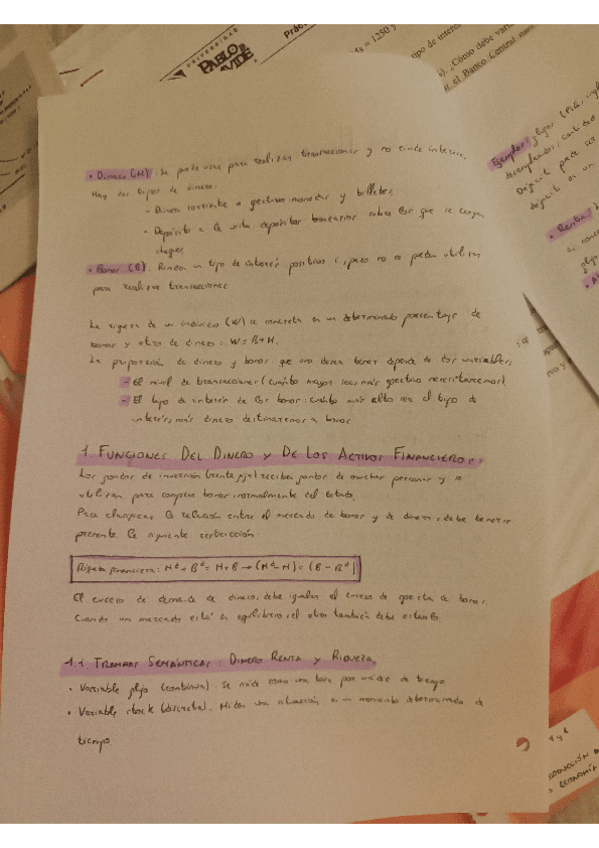 UNIVERSIDAD
PABLO DE
Prác
= 1250 y
tipo de interé
¿Cómo debe vari
el Banco Central
• Dinero (M). Se puede usar para realizar transacciones y no rinde intereses.
Hay dos tipos de dinero:
- Dinero corriente o efectivo: monedas y billetes
- Depósito a la vista: depósitos bancarios sobre los que se cargan
cheques
• Bonos (B). Rinden un tipo de interés positivo i, pero no se pueden utilizar
para realizar transacciones
La riqueza de un individuo (W) se concreta en un determinado porcentaje de
bonos y otro de dinero: W = B + M.
La proporción de dinero y bonos que uno desea tener depende de dos variables,
- El nivel de transacciones (cuánto mayor sea, más efectivo necesitaremos)
- El tipo de interés de los bonos: cuánto más alto sea el tipo de
interés, más dinero destinaremos a bonos
1. FUNCIONES DEL DINERO Y DE LOS ACTIVOS FINANCIEROS:
Los fondos de inversión reciben fondos de muchas personas y se
utilizan para comprar bonos, normalmente del estado.
Para clarificar la relación entre el mercado de bonos y de dinero, debe tenerse
presente la siguiente
Riqueza financiera: Mᵈ + Bᵈ = M + B → (Mᵈ - M) = (B - Bᵈ)
El exceso de demanda de dinero, debe igualar el exceso de oferta de bonos.
Cuando un mercado está en equilibrio, el otro también debe estarlo.
1.1 TRAMPAS SEMÁNTICAS: DINERO RENTA Y RIQUEZA
• Variable flujo (continua). Se mide como una tasa por unidad de tiempo
• Variable stock (discreta). Miden una situación en un momento determinado de
tiempo
Ejemplos: flujos (PIB,
desempleados, cantidad
Déficit puede ser
déficit en un
• Renta:
flujo
ECONOMÍA